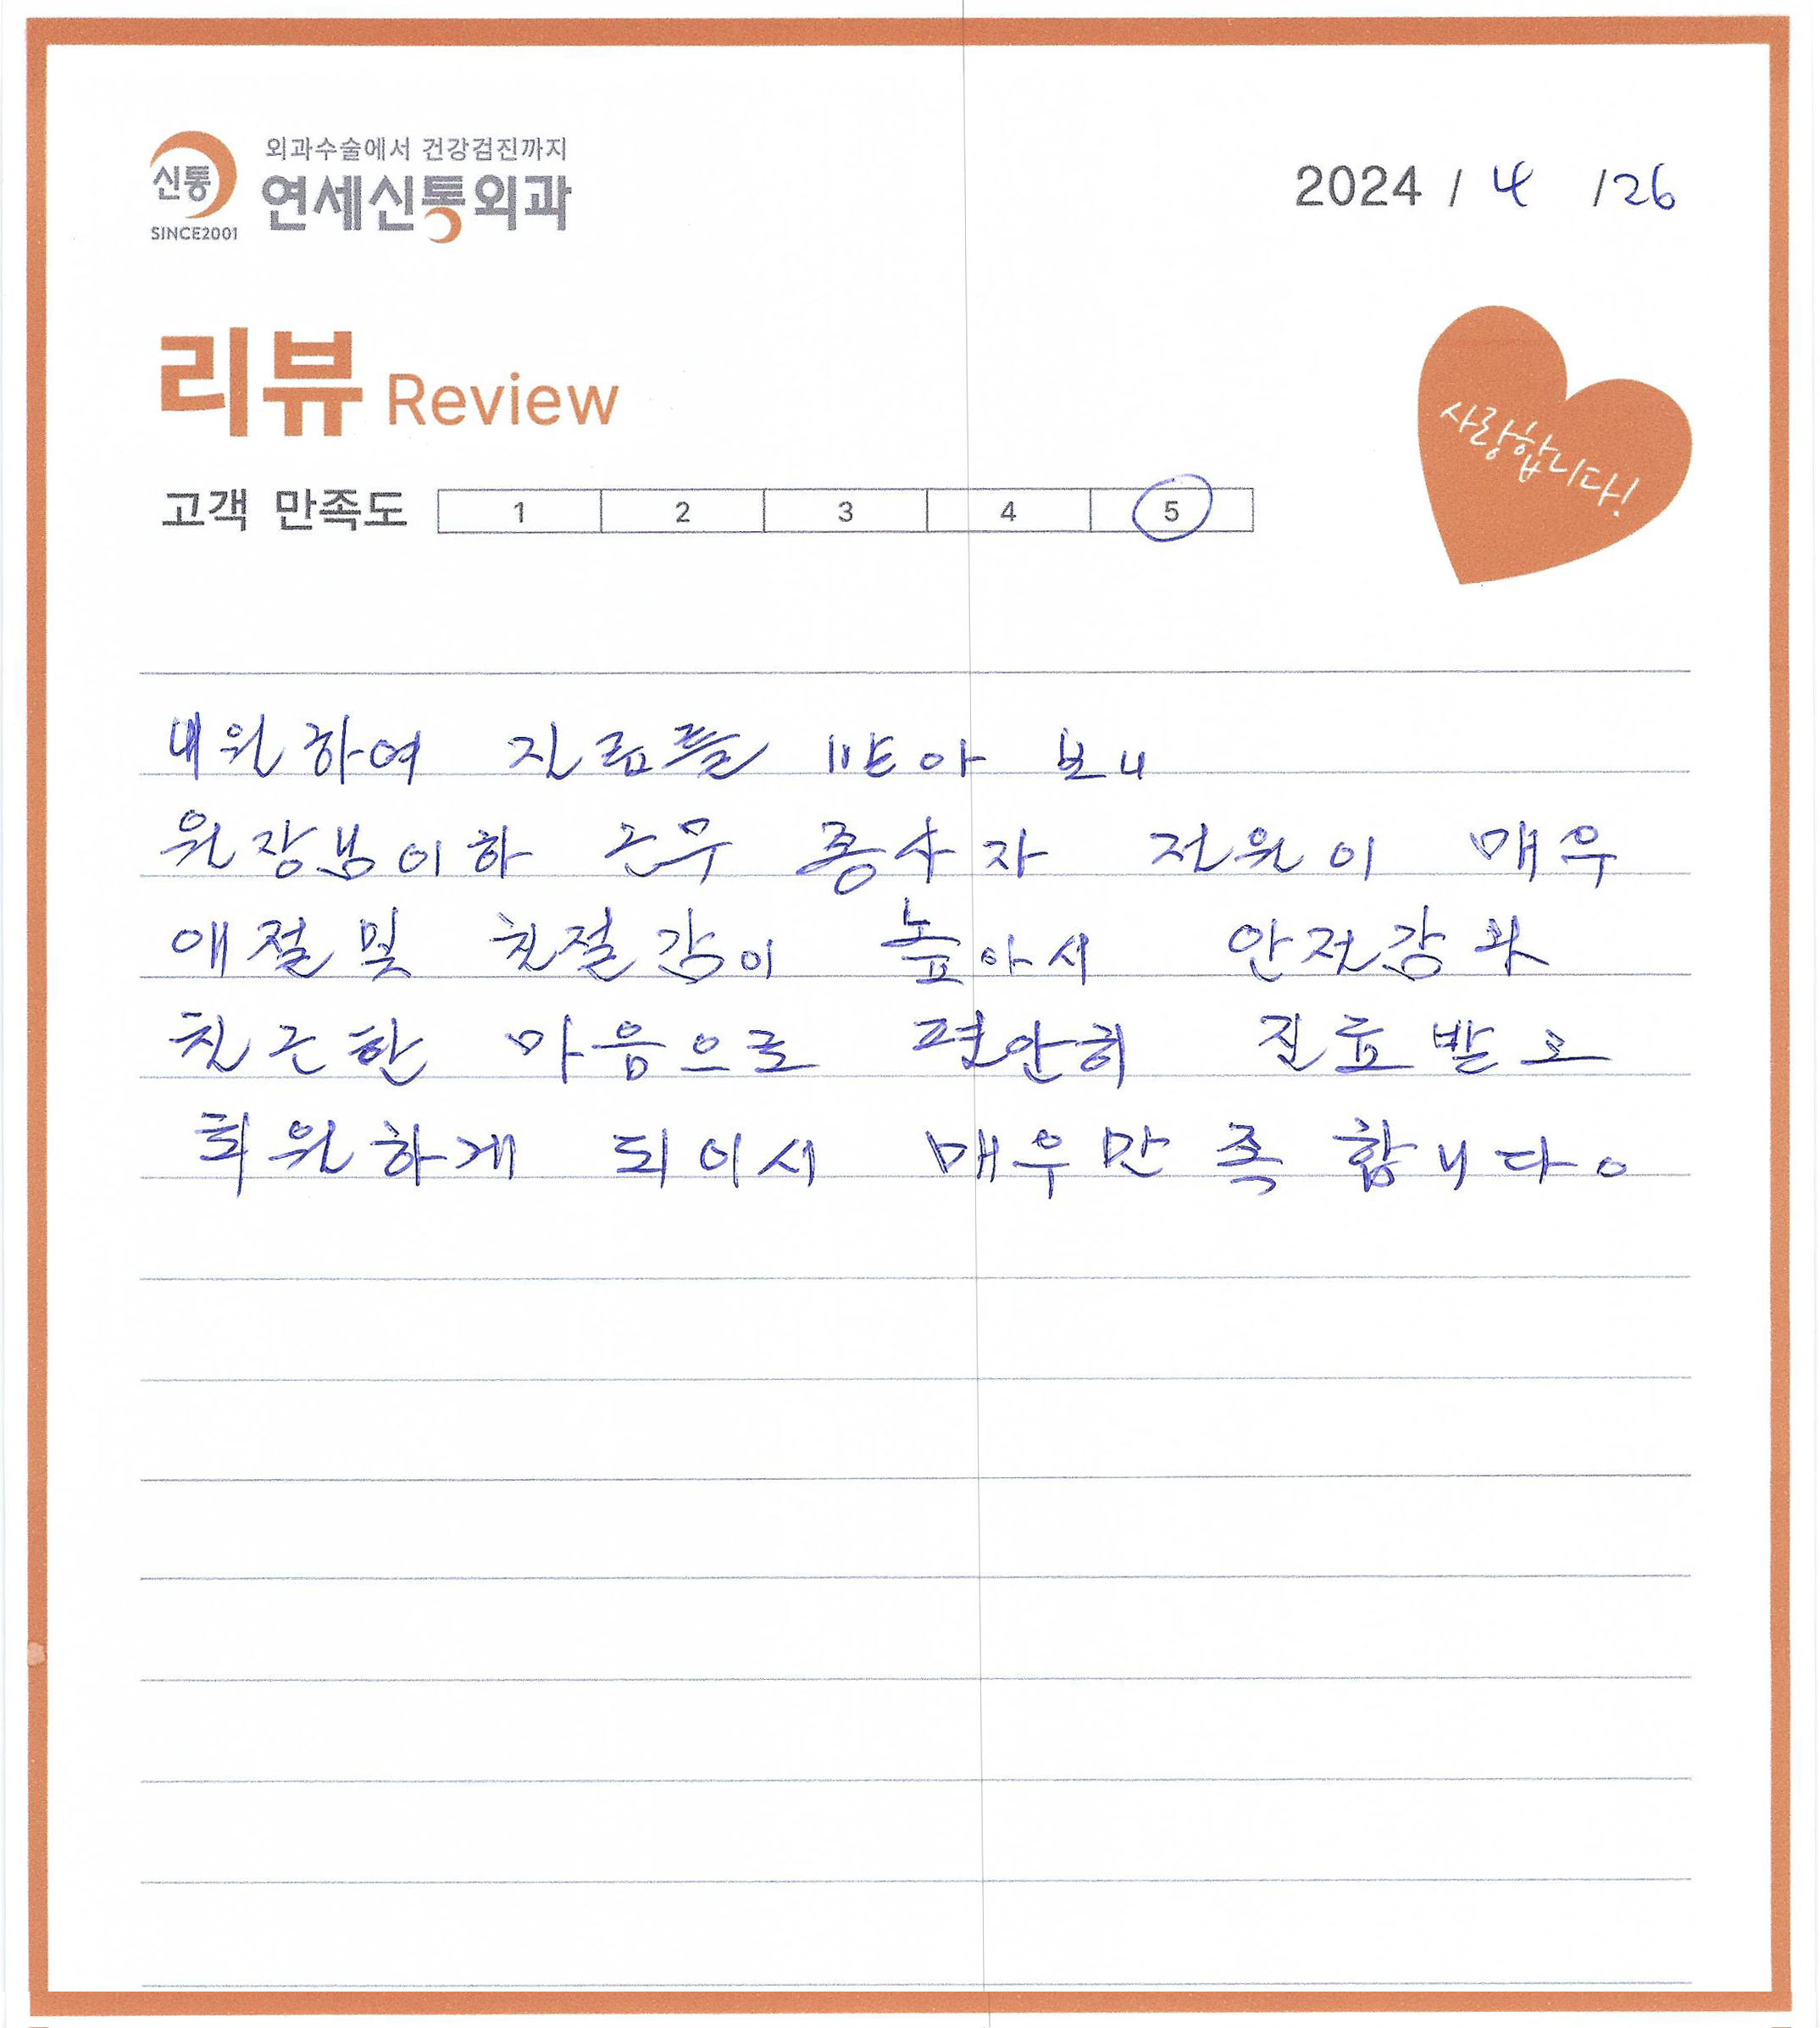 신통
SINCE2001
외과수술에서 건강검진까지
연세신통외과
2024 / 4 / 26
리뷰 Review
사랑합니다!
고객 만족도 1 2 3 4 5
내원하여 진료를 받아 보니
원장님이하 근무 종사자 전원이 매우
애절및 친절감이 높아서 안전감과
친근한 마음으로 편안히 진료받고
회원하게 되어서 매우만족합니다.